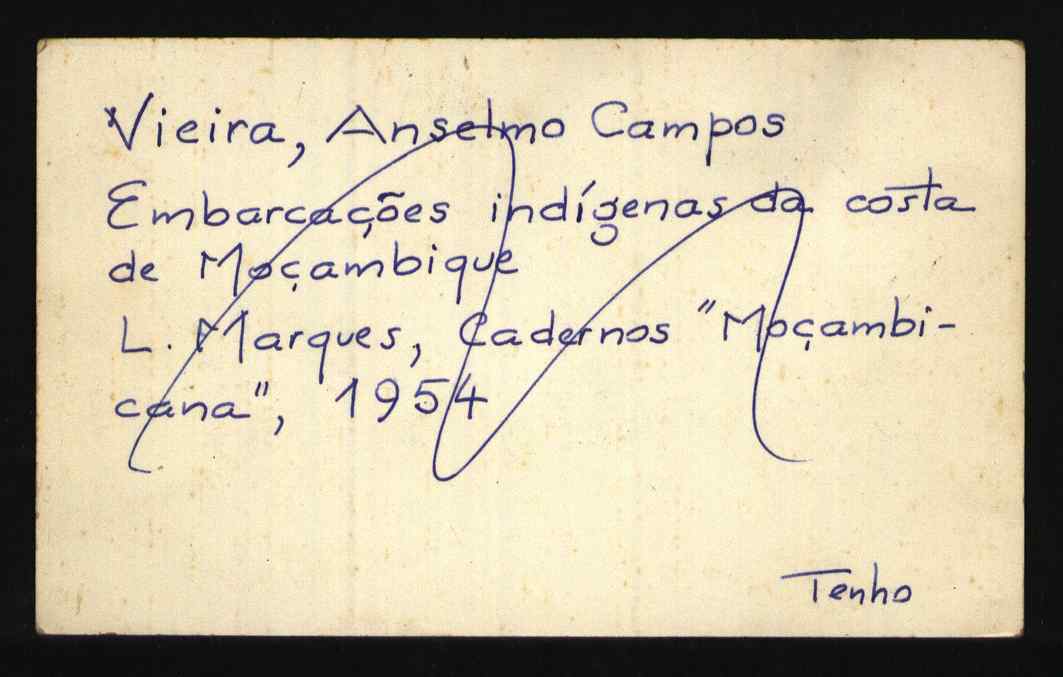 Vieira, Anselmo Campos
Embarcações indígenas da costa
de Moçambique
L. Marques, Cadernos "Moçambi-
cana", 1954
Tenho